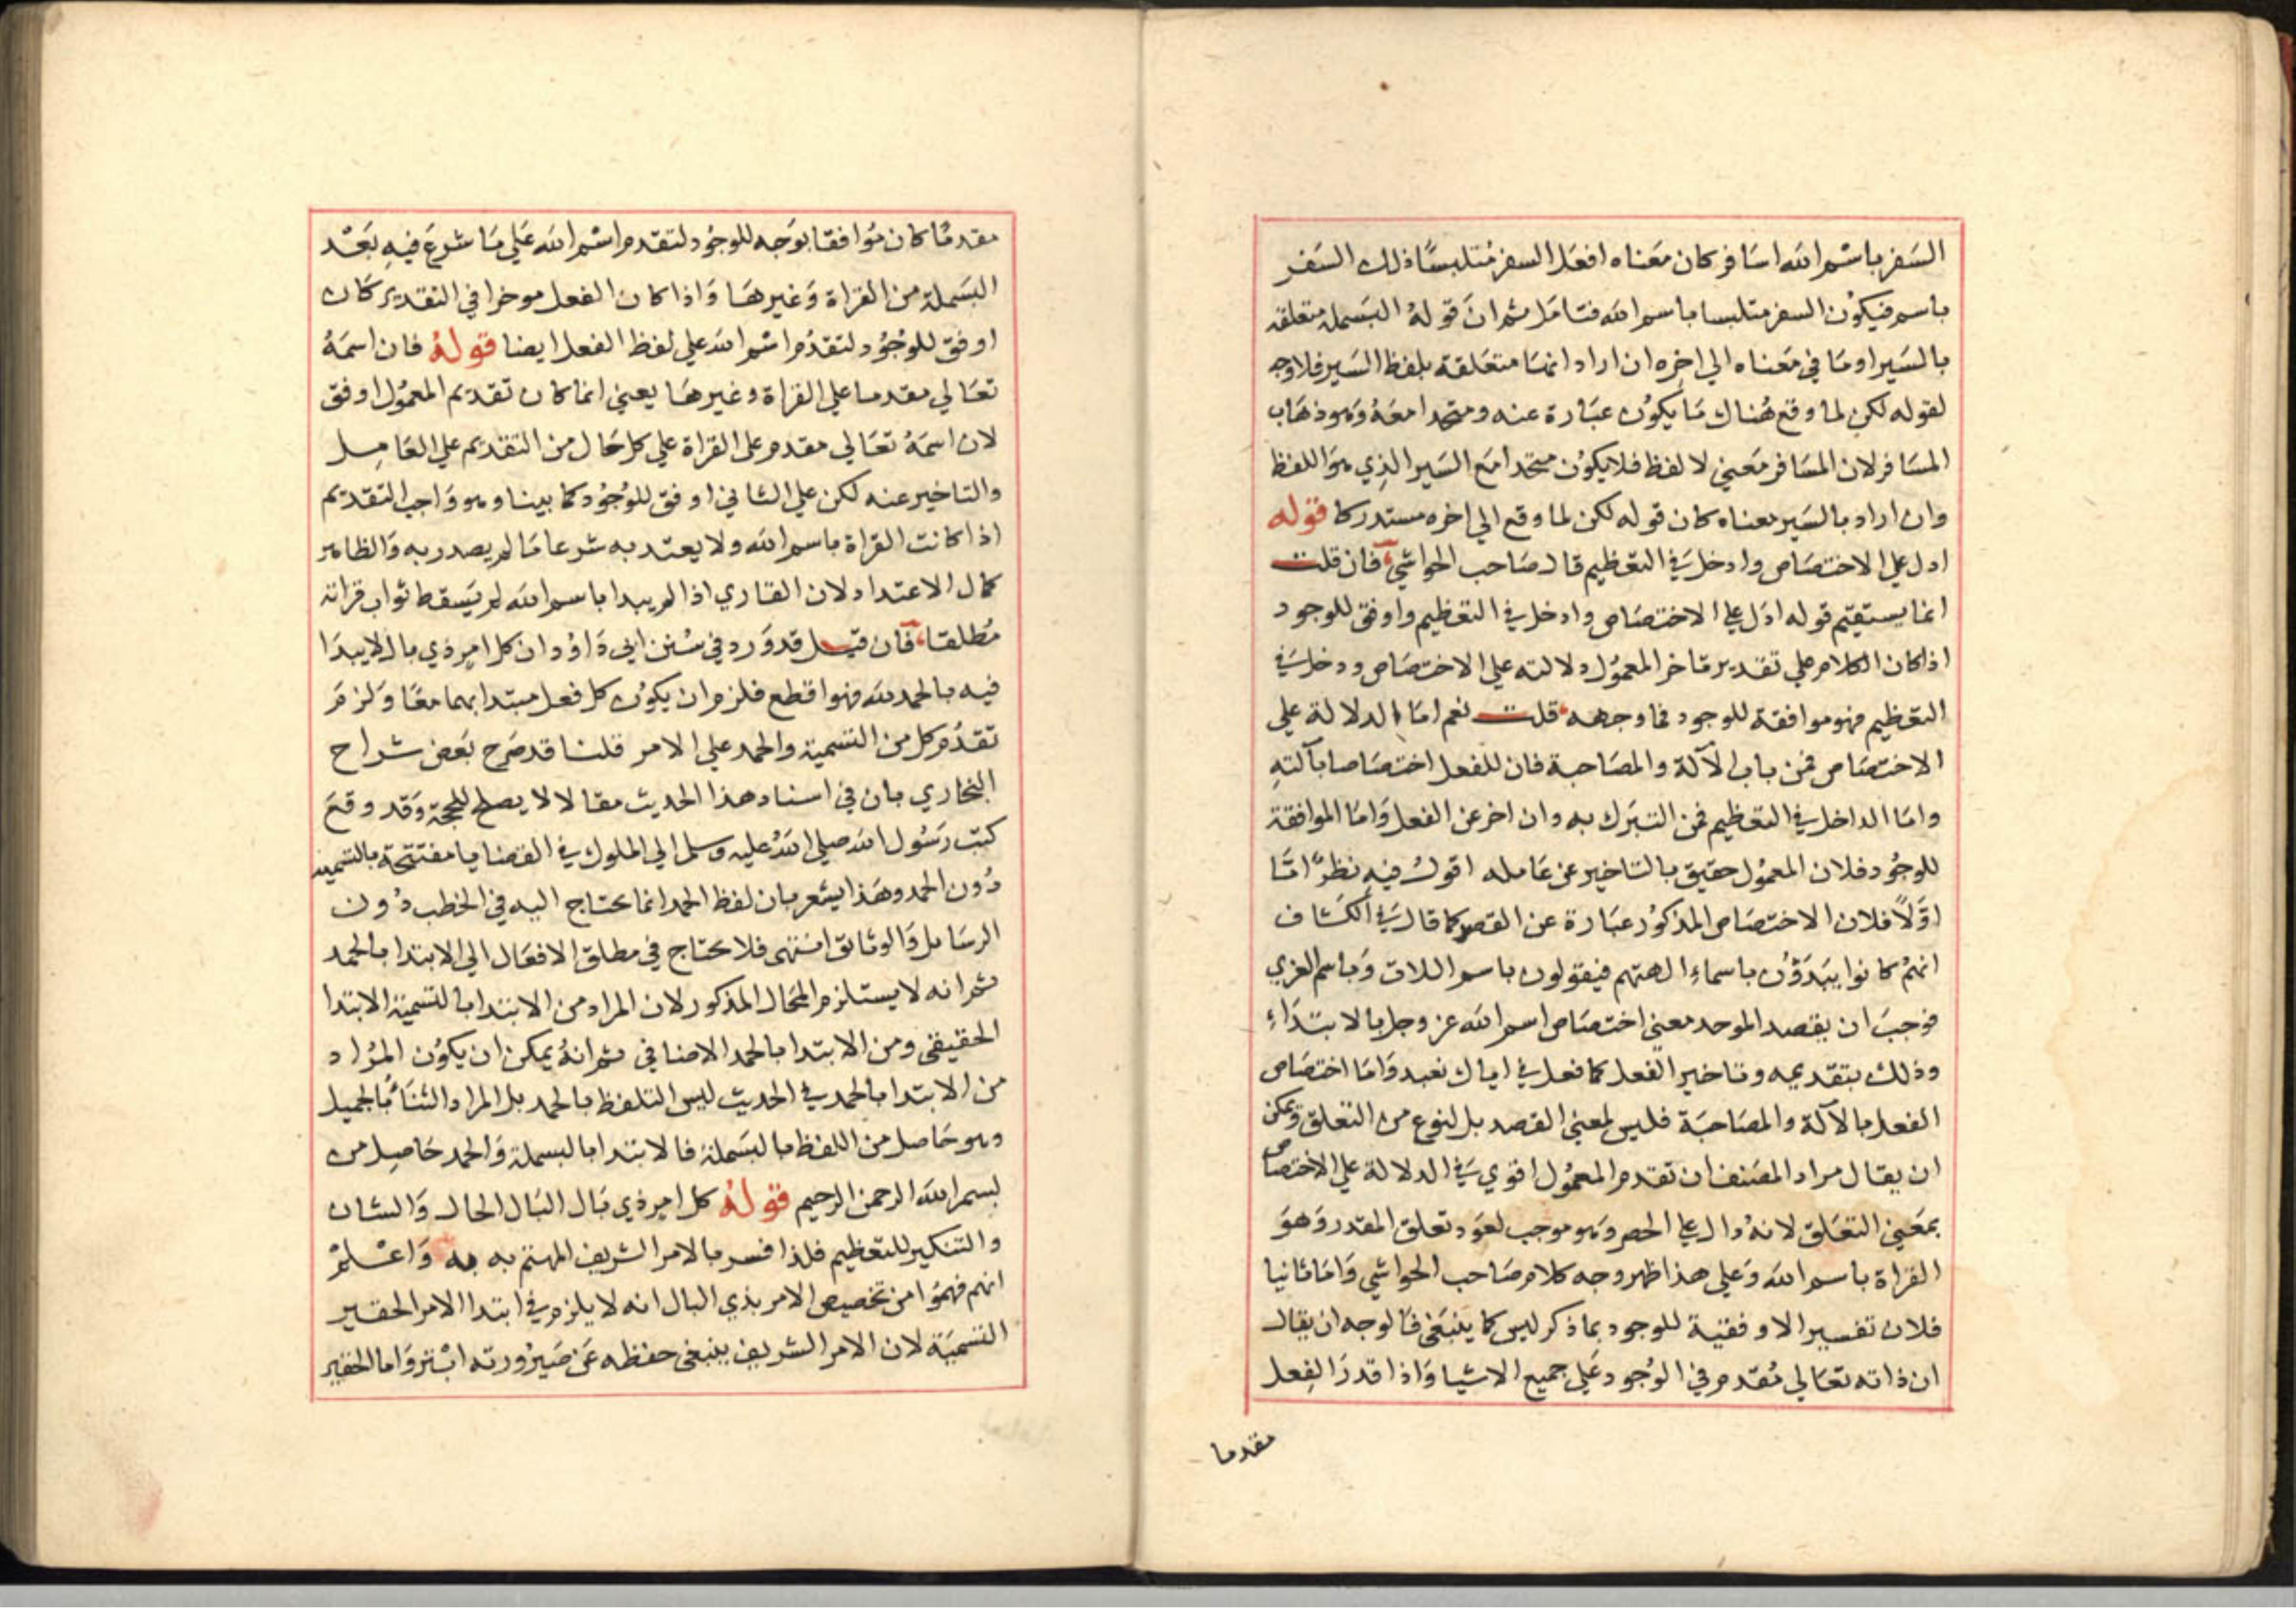 السفر باسم الله اسافر كان معناه افعل السفر متلبسا ذلك السفر
باسم فيكون السفر متلبسا باسم الله فتامل ثم ان قوله البسملة متعلقه
بالسير او ما في معناه الي اخره ان اراد انها متعلقة بلفظ السير فلا وجه
لقوله لكن لما وقع هناك ما يكون عبارة عنه ومتحدا معه وهو ذهاب
المسافر لان المسافر معني لا لفظ فلا يكون متحدا مع السير الذي هو اللفظ
وان اراد بالسير معناه كان قوله لكن لما وقع الي اخره مستدركا قوله
ادل علي الاختصاص وادخل في التعظيم قال صاحب الحواشي فان قلت
انما يستقيم قوله ادل علي الاختصاص وادخل في التعظيم واوفق للوجود
اذا كان الكلام علي تقدير تاخر المعمول دلالته علي الاختصاص ودخل في
التعظيم فهو موافقة للوجود فما وجهه قلت نعم اما الدلالة علي
الاختصاص فمن باب الآلة والمصاحبة فان للفعل اختصاصا بآلته
واما الداخل في التعظيم فمن التبرك به وان اخر عن الفعل واما الموافقة
للوجود فلان المعمول حقيق بالتاخير عن عامله اقول فيه نظر اما
اولا فلان الاختصاص المذكور عبارة عن القصر كما قال في الكشاف
انهم كانوا يبدؤن باسماء الهتهم فيقولون باسم اللات وباسم العزي
فوجب ان يقصد الموحد معني اختصاص اسم الله عز وجل بالابتداء
وذلك بتقديمه وتاخير الفعل كما فعل في اياك نعبد واما اختصاص
الفعل بالآلة والمصاحبة فليس لمعني القصد بل لنوع من التعلق ويمكن
ان يقال مراد المصنف ان تقدم المعمول اقوي في الدلالة علي الاختصاص
بمعني التعلق لانه دال علي الحصر وهو موجب لعود تعلق المقدر وهو
القراة باسم الله وعلي هذا ظهر وجه كلام صاحب الحواشي واما ثانيا
فلان تفسير الاوفقية للوجود بما ذكر ليس كما ينبغي فالوجه ان يقال
ان ذاته تعالي مقدم في الوجود علي جميع الاشيا واذا قدر الفعل
مقدما
مقدما كان موافقا بوجه للوجود لتقدم اسم الله علي ما شرع فيه بعد
البسملة من القراة وغيرها واذا كان الفعل موخرا في التقدير كان
اوفق للوجود لتقدم اسم الله علي لفظ الفعل ايضا قوله فان اسمه
تعالي مقدم ما علي القراة وغيرها يعني انما كان تقديم المعمول اوفق
لان اسمه تعالي مقدم علي القراة علي كل حال من التقديم علي العامل
والتاخير عنه لكن علي الثاني اوفق للوجود كما بينا وهو واجب التقديم
اذا كانت القراة باسم الله ولا يعتد به شرعا ما لم يصدر به والظاهر
كمال الاعتداد لان القاري اذا لم يبدا باسم الله لم يسقط ثواب قراته
مطلقا فان قيل قد ورد في سنن ابي داؤد ان كل امر ذي بال لا يبدا
فيه بالحمد لله فهو اقطع فلزم ان يكون كل فعل مبتدا بهما معا ولزم
تقدم كل من التسمية والحمد علي الامر قلنا قد صرح بعض شراح
البخاري بان في اسناد هذا الحديث مقالا لا يصلح للحجة وقد وقع
كتب رسول الله صلي الله عليه وسلم الي الملوك في القضايا مفتتحة بالتسمية
دون الحمد وهذا يشعر بان لفظ الحمد انما يحتاج اليه في الخطب دون
الرسايل والوثائق انتهي فلا يحتاج في مطلق الافعال الي الابتدا بالحمد
ثم انه لا يستلزم المحال المذكور لان المراد من الابتدا بالتسمية الابتدا
الحقيقي ومن الابتدا بالحمد الاضافي ثم انه يمكن ان يكون المراد
من الابتدا بالحمد في الحديث ليس التلفظ بالحمد بل المراد الثناء بالجميل
وهو حاصل من اللفظ بالبسملة فالابتدا بالبسملة والحمد حاصل من
بسم الله الرحمن الرحيم قوله كل امر ذي بال البال الحال والشان
والتنكير للتعظيم فلذا فسر بالامر الشريف المهتم به به واعلم
انهم فهموا من تخصيص الامر بذي البال انه لا يلزم في ابتدا الامر الحقير
التسمية لان الامر الشريف ينبغي حفظه عن صيرورته ابتر واما الحقير